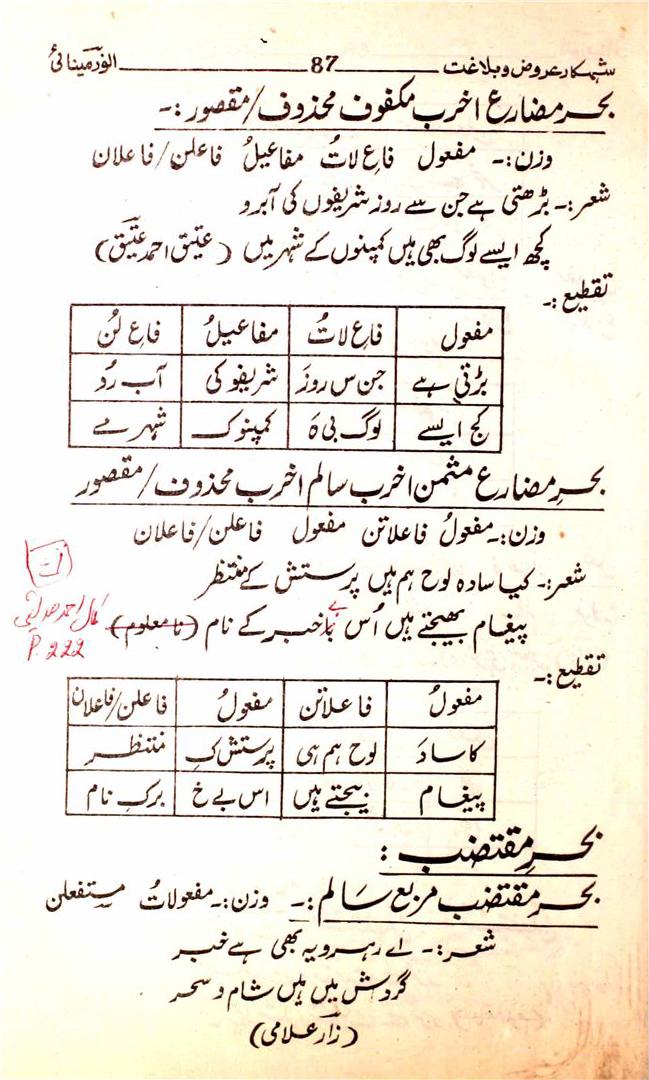 شہکار عروض و بلاغت 87 انور مینائی
بحر مضارع اخرب مکفوف محذوف/مقصور :۔
وزن:۔ مفعول فاع لاتُ مفاعیلُ فاعلن/فاعلان
شعر:۔ بڑھتی ہے جن سے روز شریفوں کی آبرو
کچھ ایسے لوگ بھی ہیں کمینوں کے شہر میں (عتیق احمد عتیق)
تقطیع :۔
مفعول فاع لاتُ مفاعیلُ فاع لُن
بڑتی ہے جن س روزَ شریفو کی آب رُد
کچ ایسے لوگ بی ہَ کمینوک شہر مے
بحرِ مضارع مثمن اخرب سالم اخرب محذوف/مقصور
وزن:۔ مفعولُ فاعلاتن مفعول فاعلن/فاعلان
شعر:۔ کیا سادہ لوح ہم ہیں پرستش کے منتظر
پیغام بھیجتے ہیں اُس بے خبر کے نام (نامعلوم)
کمال احمد صدیقی
P. 222
تقطیع :۔
مفعولُ فاعلاتن مفعولُ فاعلن/فاعلان
کاسادَ لوح ہم ہی پرستش کِ منتظر
پیغام بیجتے ہیں اس بے خ برکِ نام
بحرِ مقتضب :
بحر مقتضب مربع سالم :۔ وزن:۔ مفعولاتُ مستفعلن
شعر:۔ اے رہرو یہ بھی ہے خبر
گردش میں ہیں شام و سحر
(زار علامی)